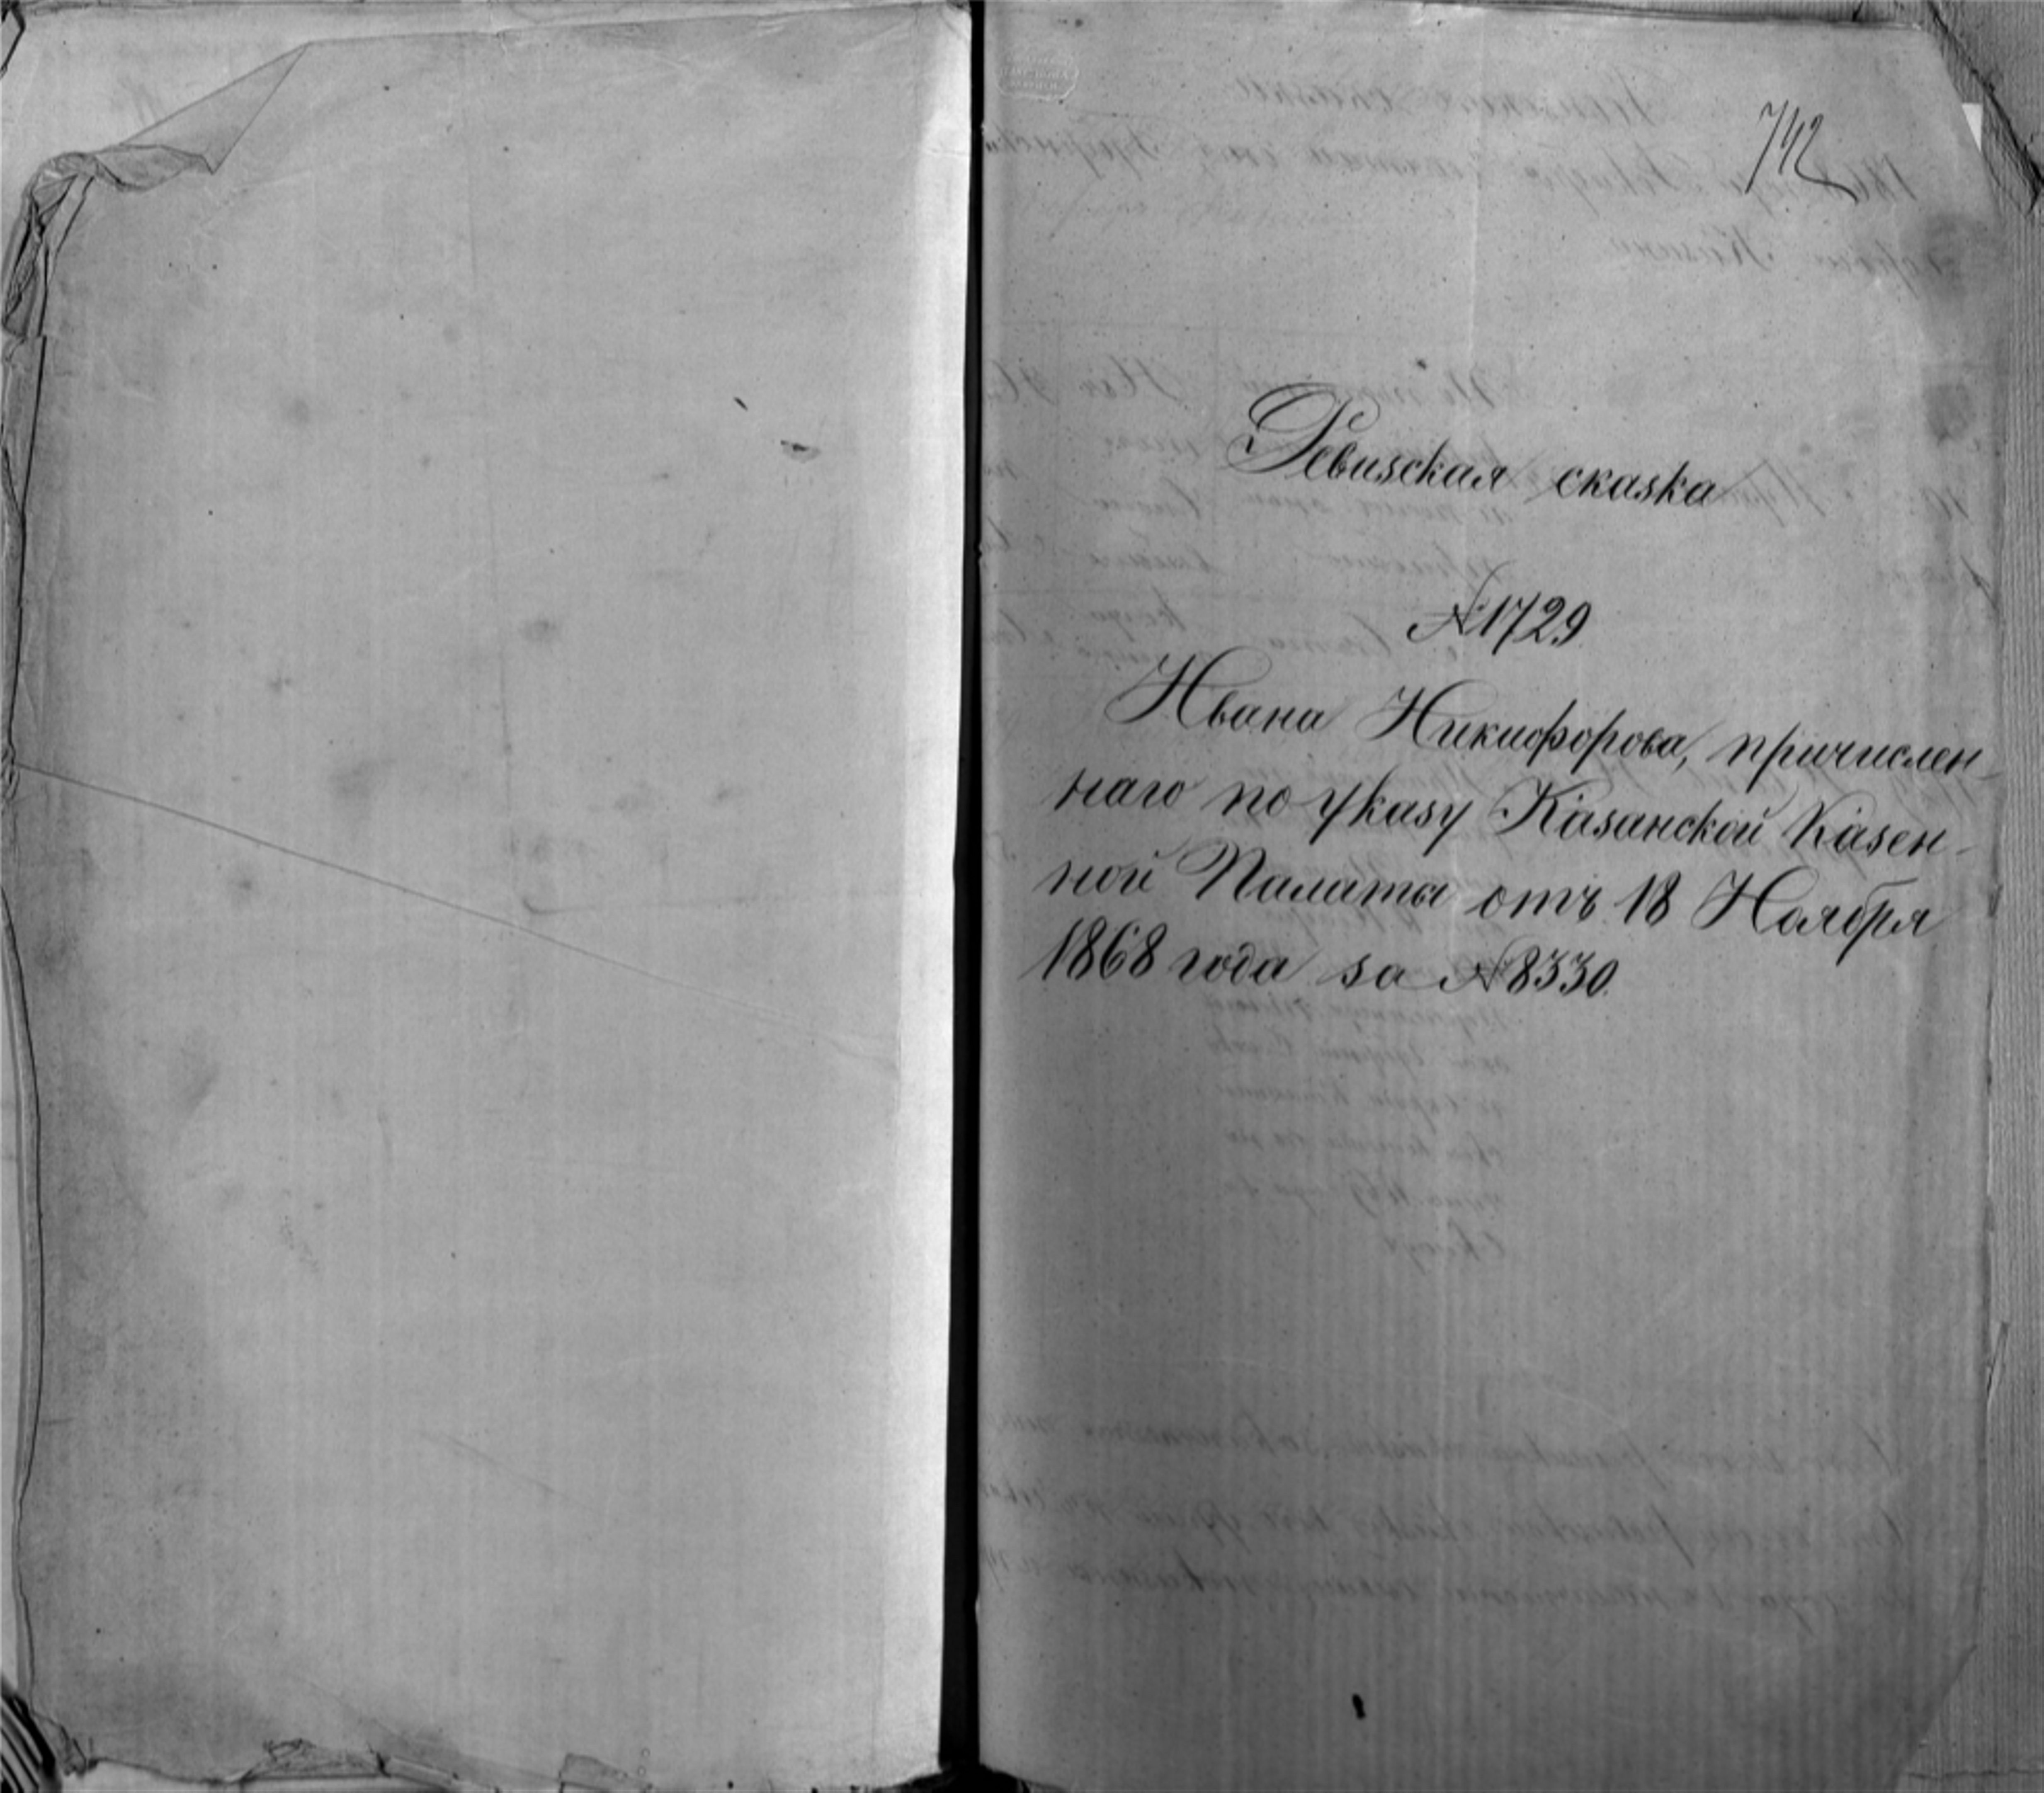 742
Ревизская сказка
№ 1729
Ивана Никифорова, причислен-
наго по указу Казанской Казен-
ной Палаты отъ 18 Ноября
1868 года за № 8330.